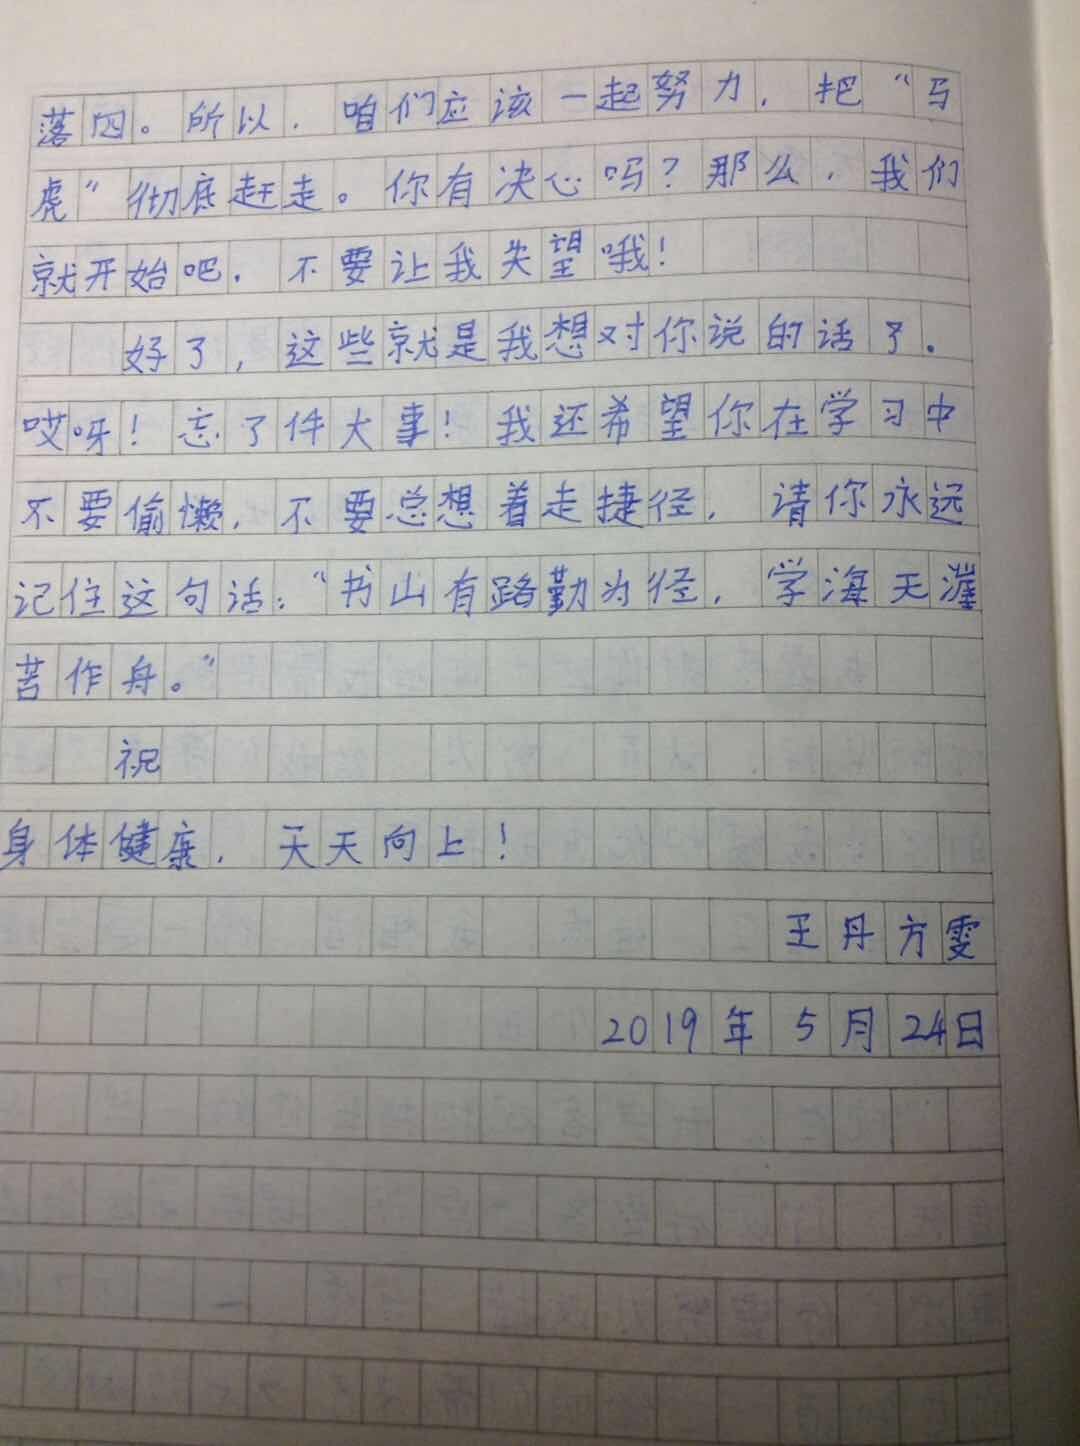 落四。所以，咱们应该一起努力，把“马
虎”彻底赶走。你有决心吗？那么，我们
就开始吧，不要让我失望哦！
好了，这些就是我想对你说的话了。
哎呀！忘了件大事！我还希望你在学习中
不要偷懒，不要总想着走捷径，请你永远
记住这句话：“书山有路勤为径，学海天漄
苦作舟。”
祝
身体健康，天天向上！
王丹方雯
2019年5月24日